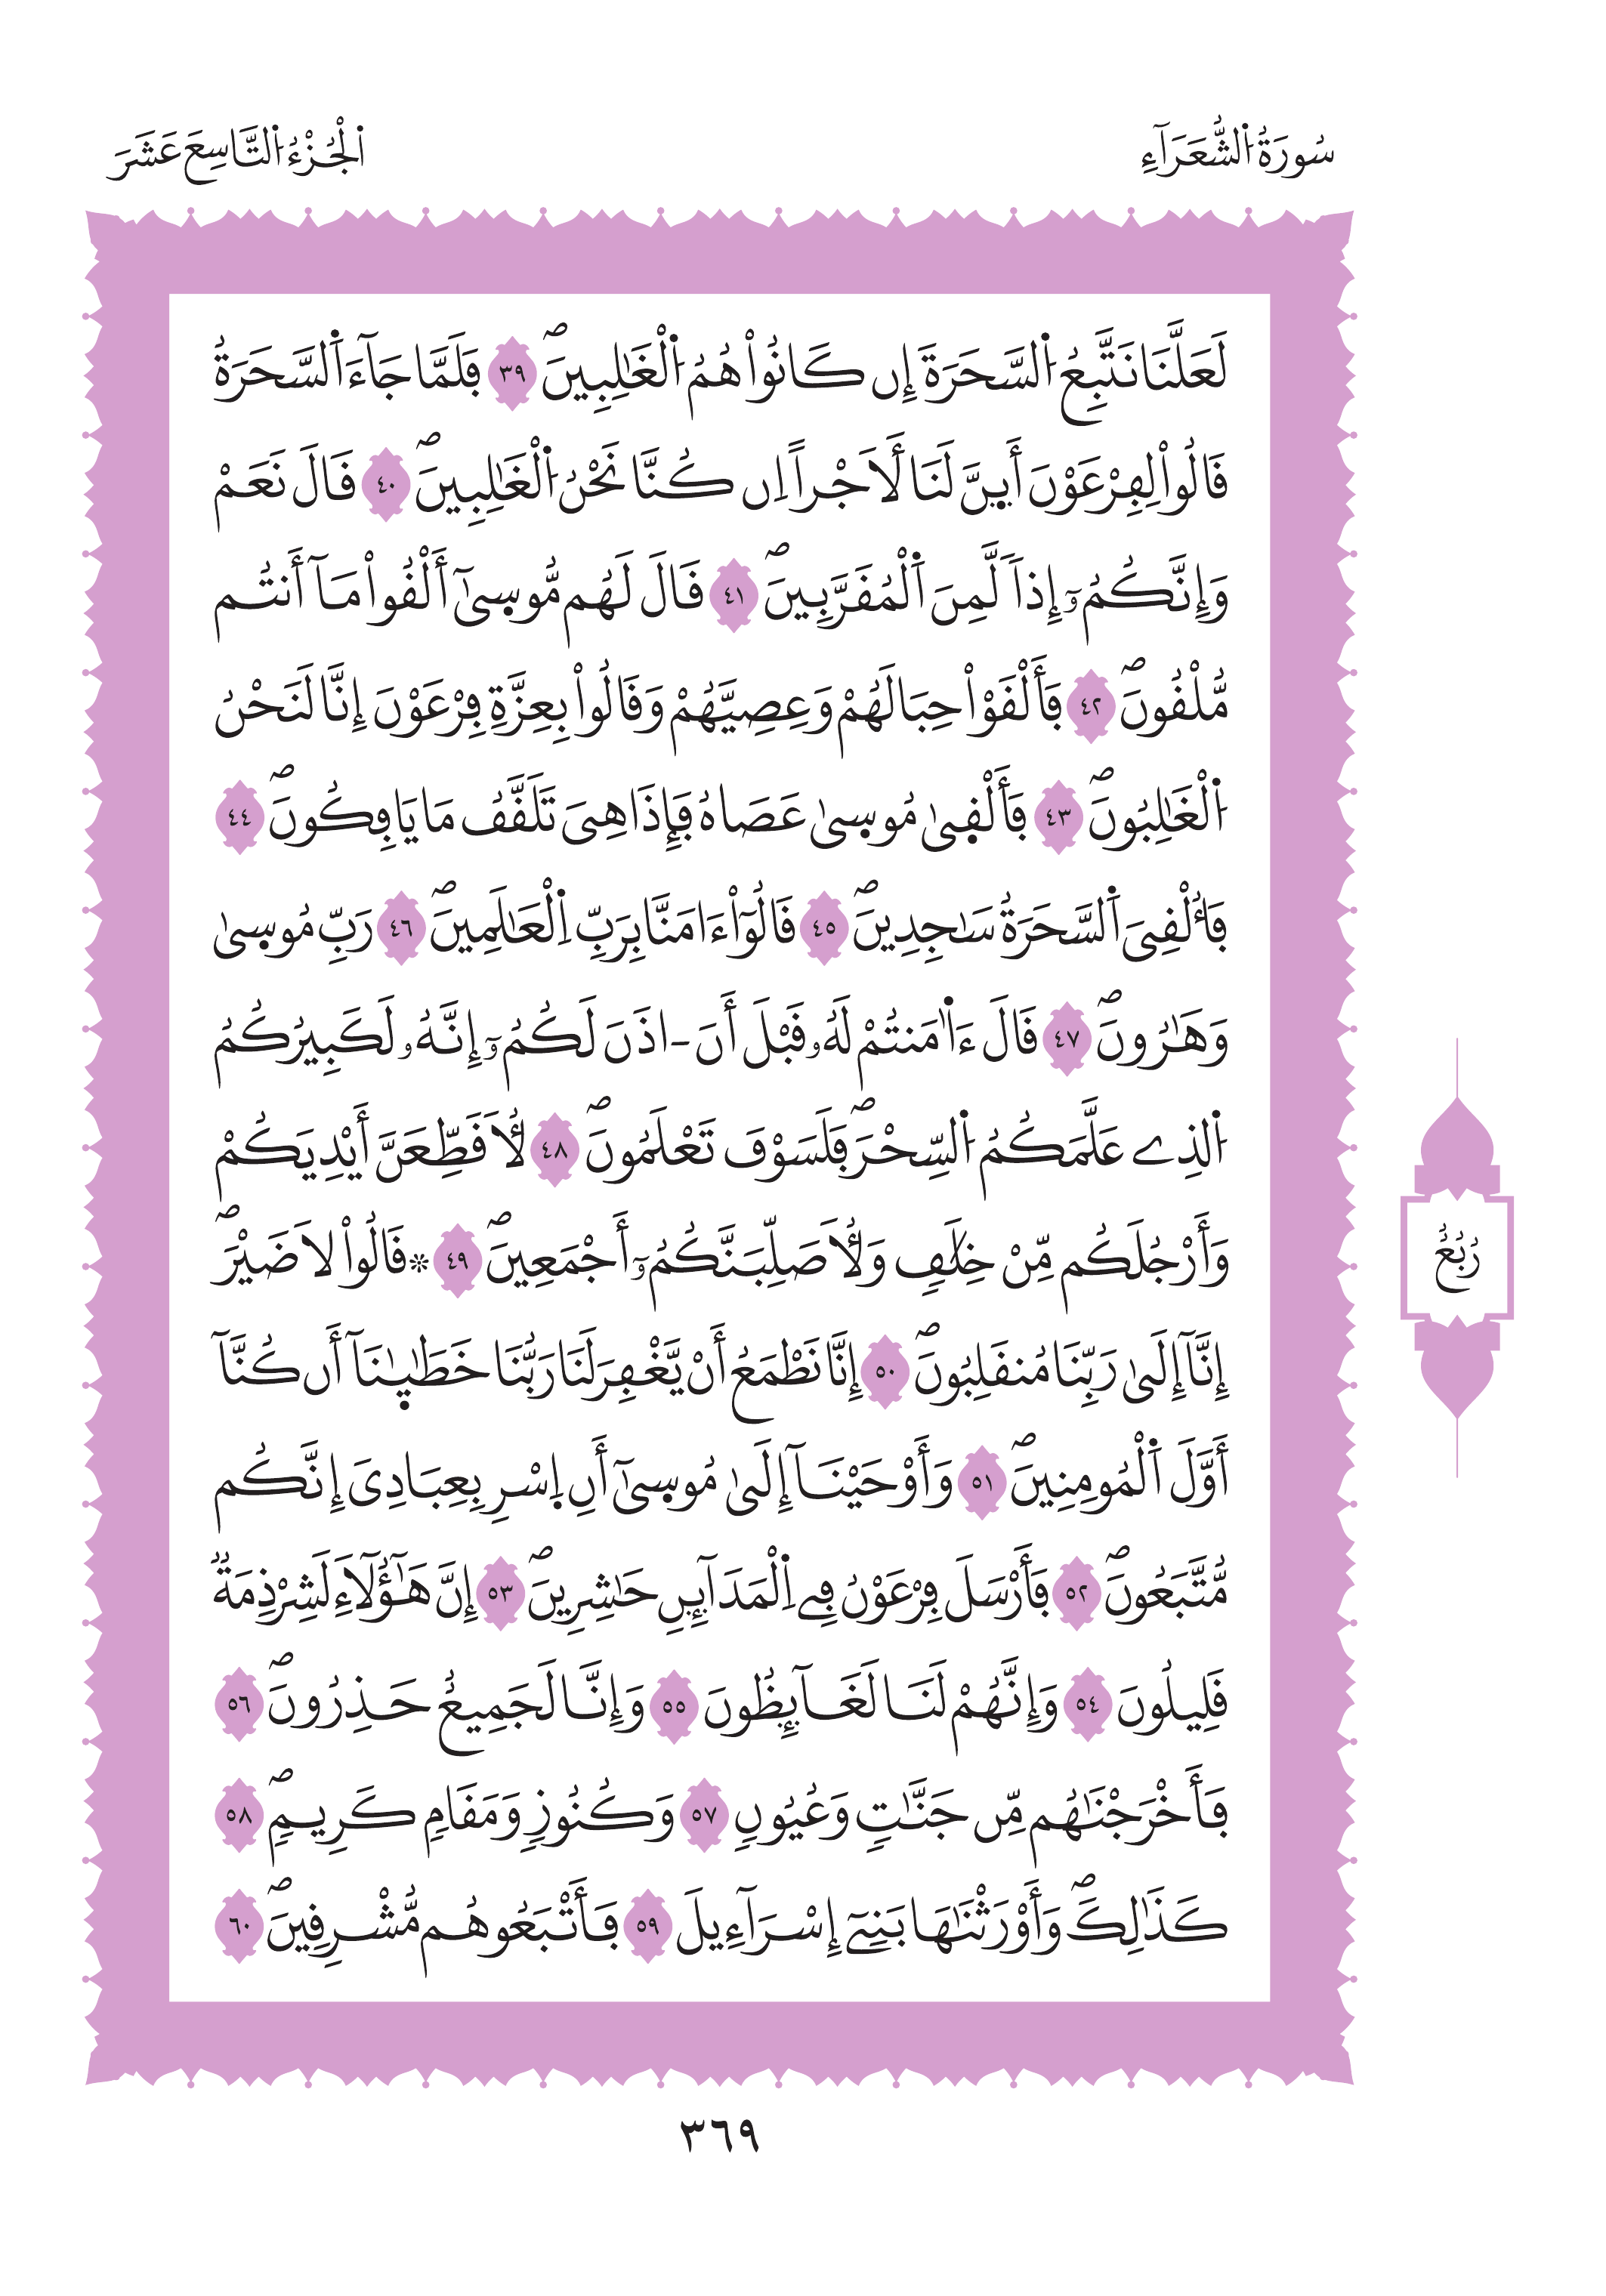 سُورَةُ اُ۬لشُّعَرَآءِ
اَ۬لْجُزْءُ اُ۬لتَّاسِعَ عَشَرَ
لَعَلَّنَا نَتَّبِعُ اُ۬لسَّحَرَةَ إِن كَانُواْ هُمُ اُ۬لْغَٰلِبِينَۖ ٣٩ فَلَمَّا جَآءَ اَ۬لسَّحَرَةُ
قَالُواْ لِفِرْعَوْنَ أَيِنَّ لَنَا لَأَجْراً اِن كُنَّا نَحْنُ اُ۬لْغَٰلِبِينَۖ ٤٠ قَالَ نَعَمْ
وَإِنَّكُمُۥٓ إِذاٗ لَّمِنَ اَ۬لْمُقَرَّبِينَۖ ٤١ قَالَ لَهُم مُّوس۪ىٰٓ أَلْقُواْ مَآ أَنتُم
مُّلْقُونَۖ ٤٢ فَأَلْقَوْاْ حِبَالَهُمْ وَعِصِيَّهُمْ وَقَالُواْ بِعِزَّةِ فِرْعَوْنَ إِنَّا لَنَحْنُ
اُ۬لْغَٰلِبُونَۖ ٤٣ فَأَلْق۪ىٰ مُوس۪ىٰ عَصَاهُ فَإِذَا هِيَ تَلَقَّفُ مَا يَافِكُونَۖ ٤٤
فَأُلْقِيَ اَ۬لسَّحَرَةُ سَٰجِدِينَۖ ٤٥ قَالُوٓاْ ءَامَنَّا بِرَبِّ اِ۬لْعَٰلَمِينَۖ ٤٦ رَبِّ مُوس۪ىٰ
وَهَٰرُونَۖ ٤٧ قَالَ ءَا۬مَنتُمْ لَهُۥ قَبْلَ أَنَ ـ اذَنَ لَكُمُۥٓ إِنَّهُۥ لَكَبِيرُكُمُ
اُ۬لذِے عَلَّمَكُمُ اُ۬لسِّحْرَۖ فَلَسَوْفَ تَعْلَمُونَۖ ٤٨ لَأُقَطِّعَنَّ أَيْدِيَكُمْ
وَأَرْجُلَكُم مِّنْ خِلَٰفٖ وَلَأُصَلِّبَنَّكُمُۥٓ أَجْمَعِينَۖ ٤٩ ۞ قَالُواْ لَا ضَيْرَۖ
إِنَّآ إِلَىٰ رَبِّنَا مُنقَلِبُونَۖ ٥٠ إِنَّا نَطْمَعُ أَنْ يَّغْفِرَ لَنَا رَبُّنَا خَطَٰيٰ۪نَآ أَن كُنَّآ
أَوَّلَ اَ۬لْمُومِنِينَۖ ٥١ وَأَوْحَيْنَآ إِلَىٰ مُوس۪ىٰٓ أَنِ اِ۪سْرِ بِعِبَادِيَ إِنَّكُم
مُّتَّبَعُونَۖ ٥٢ فَأَرْسَلَ فِرْعَوْنُ فِے اِ۬لْمَدَآئِنِ حَٰشِرِينَۖ ٥٣ إِنَّ هَٰٓؤُلَآءِ لَشِرْذِمَةٞ
قَلِيلُونَ ٥٤ وَإِنَّهُمْ لَنَا لَغَآئِظُونَ ٥٥ وَإِنَّا لَجَمِيعٌ حَذِرُونَۖ ٥٦
فَأَخْرَجْنَٰهُم مِّن جَنَّٰتٖ وَعُيُونٖ ٥٧ وَكُنُوزٖ وَمَقَامٖ كَرِيمٖۖ ٥٨
كَذَٰلِكَۖ وَأَوْرَثْنَٰهَا بَنِےٓ إِسْرَآءِيلَ ٥٩ فَأَتْبَعُوهُم مُّشْرِقِينَۖ ٦٠
رُبُعُ
٣٦٩